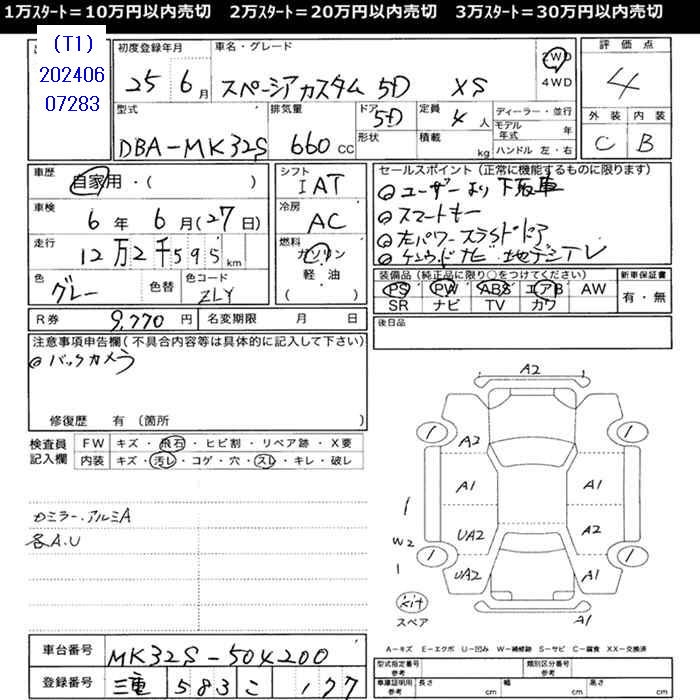 1万スタート＝10万円以内売切 2万スタート＝20万円以内売切 3万スタート＝30万円以内売切
(T1)
202406
07283
初度登録年月
25 6月
車名・グレード
スペーシアカスタム 5D XS
2WD
4WD
評価点
4
外装 内装
C B
型式
DBA-MK32S
排気量
660 CC
ドア
5D
形状
定員
4人
積載
kg
ディーラー・並行
モデル年式 年
ハンドル 左・右
車歴
自家用・( )
車検
6年 6月(27日)
走行
12万2千595km
色
グレー
色替
色コード
ZLY
シフト
IAT
冷房
AC
燃料
ガソリン
軽油
( )
セールスポイント(正常に機能するものに限ります)
◎ユーザーより下取車
◎スマートキー
◎左パワースライドドア
◎ケンウッドナビ 地デジTV
装備品(純正品に限り○をつけてください)
PS PW ABS エアB AW
SR ナビ TV カワ
新車保証書
有・無
R券 9,770円
名変期限 月 日
後日品
注意事項申告欄(不具合内容等は具体的に記入して下さい)
◎バックカメラ
修復歴 有 (箇所 )
検査員
記入欄
FW キズ・飛石・ヒビ割・リペア跡・X要
内装 キズ・汚レ・コゲ・穴・スレ・キレ・破レ
ミラー・アルミA
各A.U
A2
1 1
A2
A1 A1
1
UA2 A2
W2
1 1
1
UA2 A1
A1
kit
スペア
A=キズ E=エクボ U=凹み W=補修跡 S=サビ C=腐食 XX=交換済
車台番号 MK32S-504200
登録番号 三重 583 こ 177
型式指定番号
参考
類別区分番号
参考
車庫証明用
参考
長さ cm 幅 cm 高さ cm